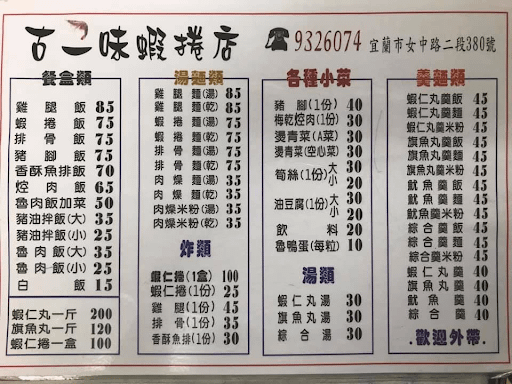 古早味蝦捲店
☎9326074 宜蘭市女中路二段380號
餐盒類
雞腿飯 85
蝦捲飯 75
排骨飯 75
豬腳飯 75
香酥魚排飯 70
焢肉飯 65
魯肉飯加菜 50
豬油拌飯(大) 35
豬油拌飯(小) 25
魯肉飯(大) 35
魯肉飯(小) 25
白飯 15
蝦仁丸一斤 200
旗魚丸一斤 120
蝦仁捲一盒 100
湯麵類
雞腿麵(湯) 85
雞腿麵(乾) 85
蝦捲麵(湯) 75
蝦捲麵(乾) 75
排骨麵(湯) 75
排骨麵(乾) 75
肉燥麵(湯) 35
肉燥麵(乾) 35
肉燥米粉(湯) 35
肉燥米粉(乾) 35
炸類
蝦仁捲(1盒) 100
蝦仁捲(1份) 25
雞腿(1份) 45
排骨(1份) 35
香酥魚排(1份) 30
各種小菜
豬腳(1份) 40
梅乾焢肉(1份) 30
燙青菜(A菜) 30
燙青菜(空心菜) 30
筍絲(1份) 大 30
小 20
油豆腐(1份) 大 30
小 20
飲料 20
魯鴨蛋(每粒) 10
湯類
蝦仁丸湯 30
旗魚丸湯 30
綜合湯 30
羹麵類
蝦仁丸羹飯 45
蝦仁丸羹麵 45
蝦仁丸羹米粉 45
旗魚丸羹飯 45
旗魚丸羹麵 45
旗魚丸羹米粉 45
魷魚羹飯 45
魷魚羹麵 45
魷魚羹米粉 45
綜合羹飯 45
綜合羹麵 45
綜合羹米粉 45
蝦仁丸羹 40
旗魚丸羹 40
魷魚羹 40
綜合羹 40
.歡迎外帶.